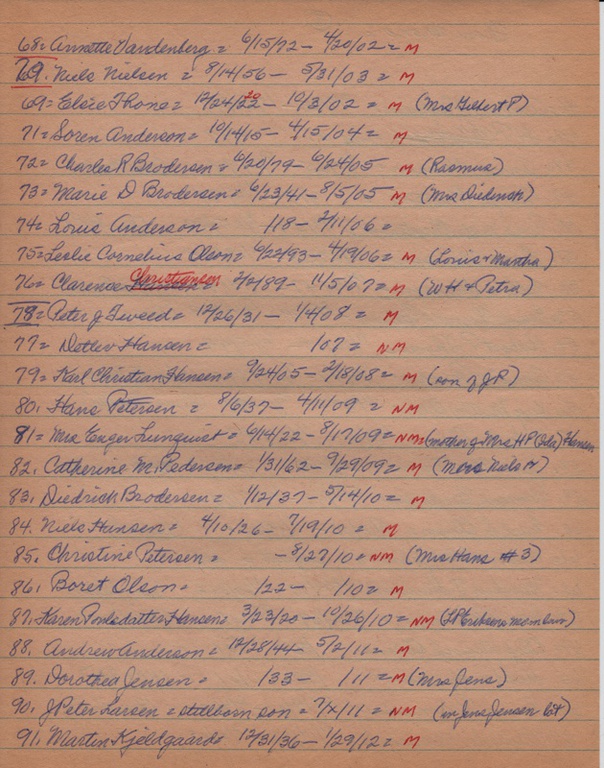 68= Annette Vandenberg = 6/15/72 - 4/20/02 = M
79. Niels Nielsen = 8/14/56 - 5/31/03 = M
69= Elsie Thone = 12/24/22 20 - 10/3/02 = M (Mrs Gilbert P)
71= Soren Anderson = 10/14/15 - 4/15/04 = M
72= Charles R Brodersen = 6/20/79 - 6/24/05 M (Rasmus)
73= Marie D Brodersen = 6/23/41 - 8/5/05 M (Mrs Diedrick)
74= Louis Anderson = /18 - 2/11/06 =
75= Leslie Cornelius Olson = 6/22/93 - 4/19/06 = M (Louis + Martha)
76= Clarence Christiansen = 2/2/89 - 11/5/07 = M (WH + Petra)
78= Peter J Tweed = 12/26/31 - 1/4/08 = M
77= Detlev Hansen = /07 = NM
79= Karl Christian Hansen = 9/24/05 - 2/18/08 = M (son of JP)
80. Hans Petersen = 8/6/37 - 4/11/09 = NM
81= Mrs Enger Lunquist = 6/14/22 - 8/17/09 = NM = (mother of Mrs HP (Ida) Hansen
82. Catherine M. Pedersen = 1/31/62 - 9/29/09 = M (Mrs Niels N)
83. Diedrick Brodersen = 1/12/37 - 5/14/10 = M
84. Niels Hansen = 4/10/26 - 7/19/10 = M
85. Christine Petersen = - 8/27/10 = NM (Mrs Hans #3)
86. Borst Olson = /22 - /10 = M
87. Karen Poulsdatter Hansen = 3/23/20 - 10/26/10 = NM
88. Andrew Anderson = 12/28/44 - 5/2/11 = M
89. Dorothea Jensen = /33 - /11 = M (Mrs Jens)
90. J Peter Larsen = stillborn son = ?/x/11 = NM (in Jens Jensen lot)
91. Martin Kjeldgaard = 12/31/36 - 1/29/12 = M